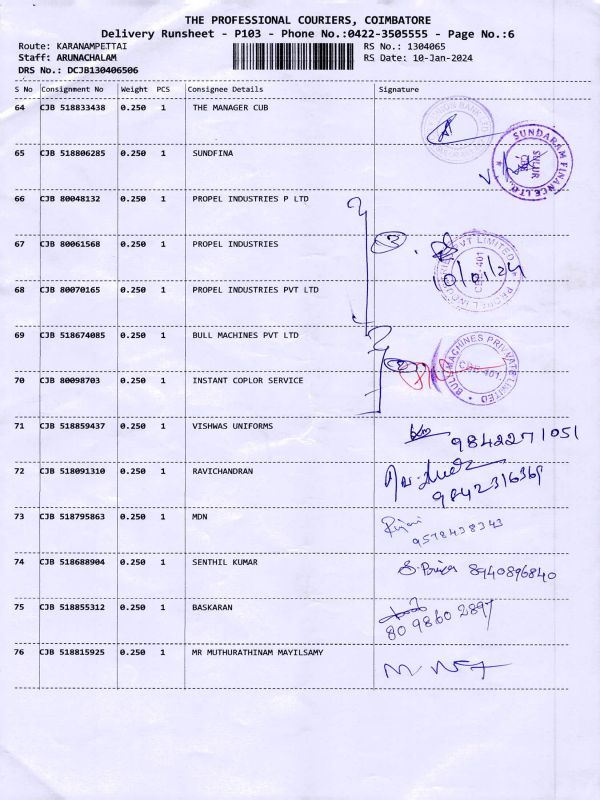 THE PROFESSIONAL COURIERS, COIMBATORE
Delivery Runsheet - P103 - Phone No.:0422-3505555 - Page No.:6
Route: KARANAMPETTAI RS No.: 1304065
Staff: ARUNACHALAM RS Date: 10-Jan-2024
DRS No.: DCJB130406506
S No Consignment No Weight PCS Consignee Details Signature
64 CJB 518833438 0.250 1 THE MANAGER CUB
65 CJB 518806285 0.250 1 SUNDFINA
SUNDARAM FINANCE LTD.
SULUR
66 CJB 80048132 0.250 1 PROPEL INDUSTRIES P LTD
67 CJB 80061568 0.250 1 PROPEL INDUSTRIES
10/01/24
68 CJB 80070165 0.250 1 PROPEL INDUSTRIES PVT LTD
69 CJB 518674085 0.250 1 BULL MACHINES PVT LTD
BULL MACHINES PRIVATE LIMITED
CBE-401.
70 CJB 80098703 0.250 1 INSTANT COPLOR SERVICE
71 CJB 518859437 0.250 1 VISHWAS UNIFORMS
9842271051
72 CJB 518091310 0.250 1 RAVICHANDRAN
9842316369
73 CJB 518795863 0.250 1 MDN
9578438343
74 CJB 518688904 0.250 1 SENTHIL KUMAR S. Priya 8940896840
75 CJB 518855312 0.250 1 BASKARAN
80 9860 2897
76 CJB 518815925 0.250 1 MR MUTHURATHINAM MAYILSAMY